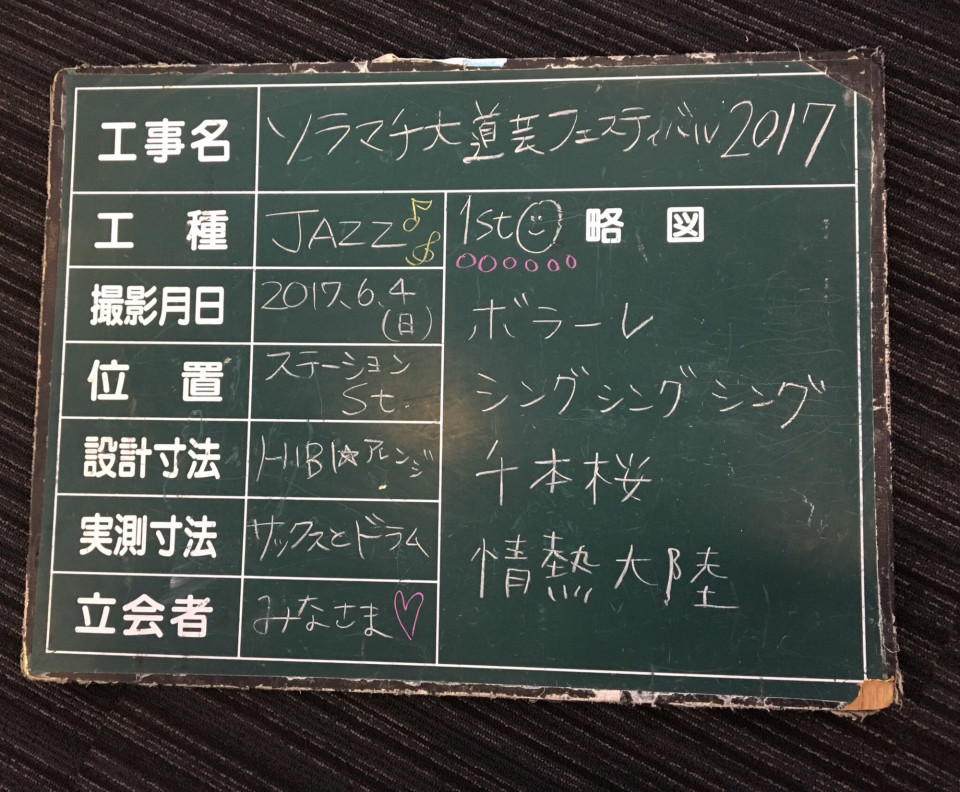 工事名 ソラマチ大道芸フェスティバル2017
工種 JAZZ
撮影月日 2017.6.4
(日)
位置 ステーション
St.
設計寸法 HIBI☆アレンジ
実測寸法 サックスとドラム
立会者 みなさま♡
1st 略図
ボラーレ
シングシングシング
千本桜
情熱大陸